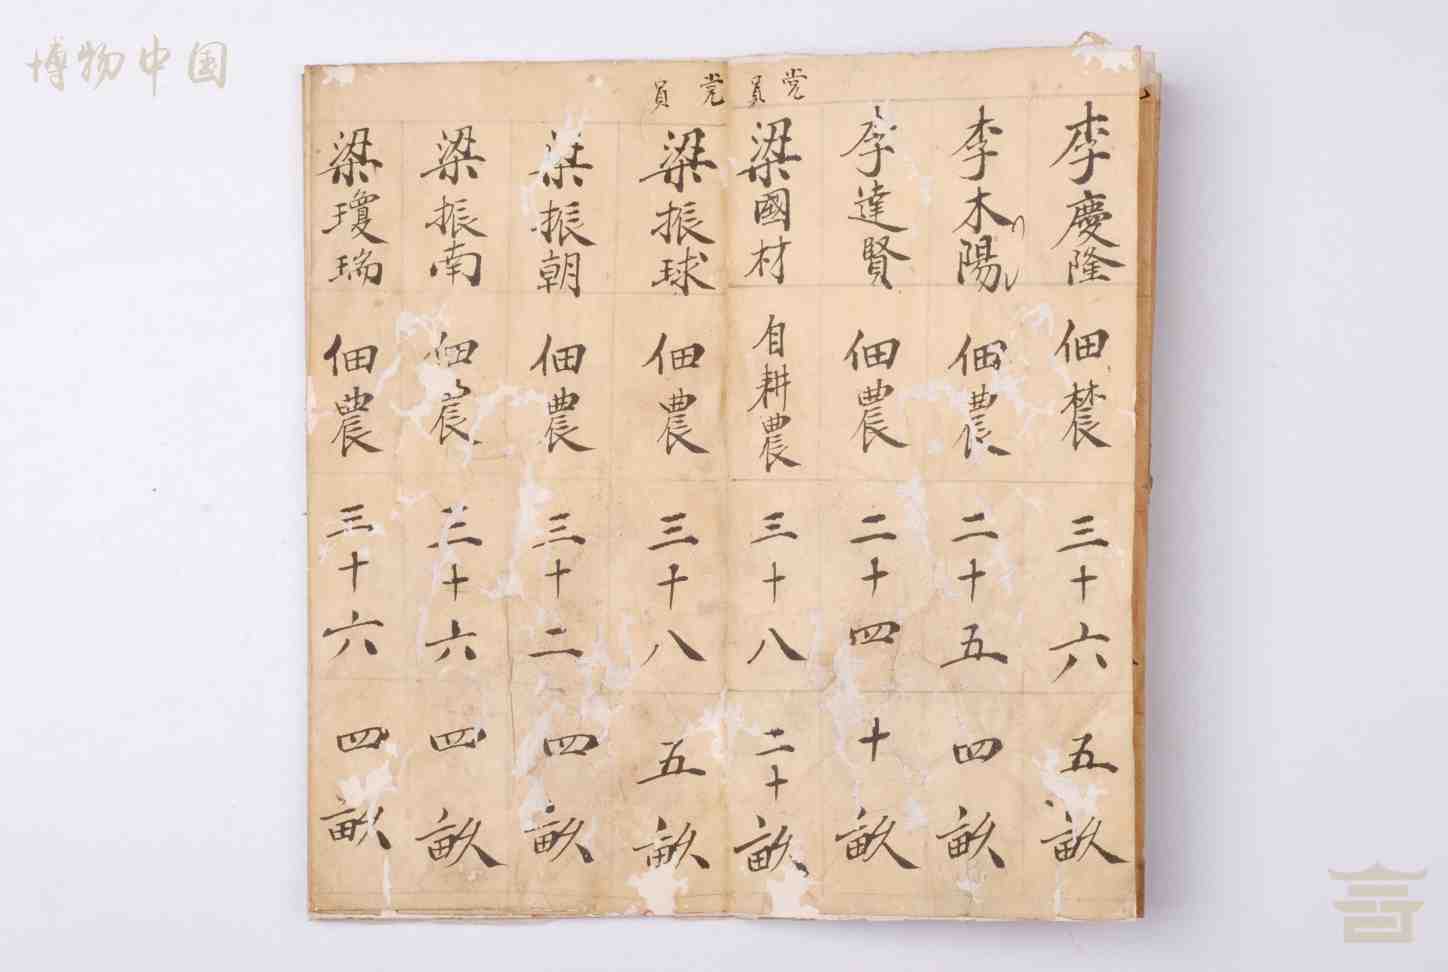 博物中国
李慶隆 佃農 三十六 五畝
李木陽 佃農 二十五 四畝
李達賢 佃農 二十四 十畝
党員 梁國材 自耕農 三十八 二十畝
党員 梁振球 佃農 三十八 五畝
梁振朝 佃農 三十二 四畝
梁振南 佃農 三十六 四畝
梁瓊瑞 佃農 三十六 四畝